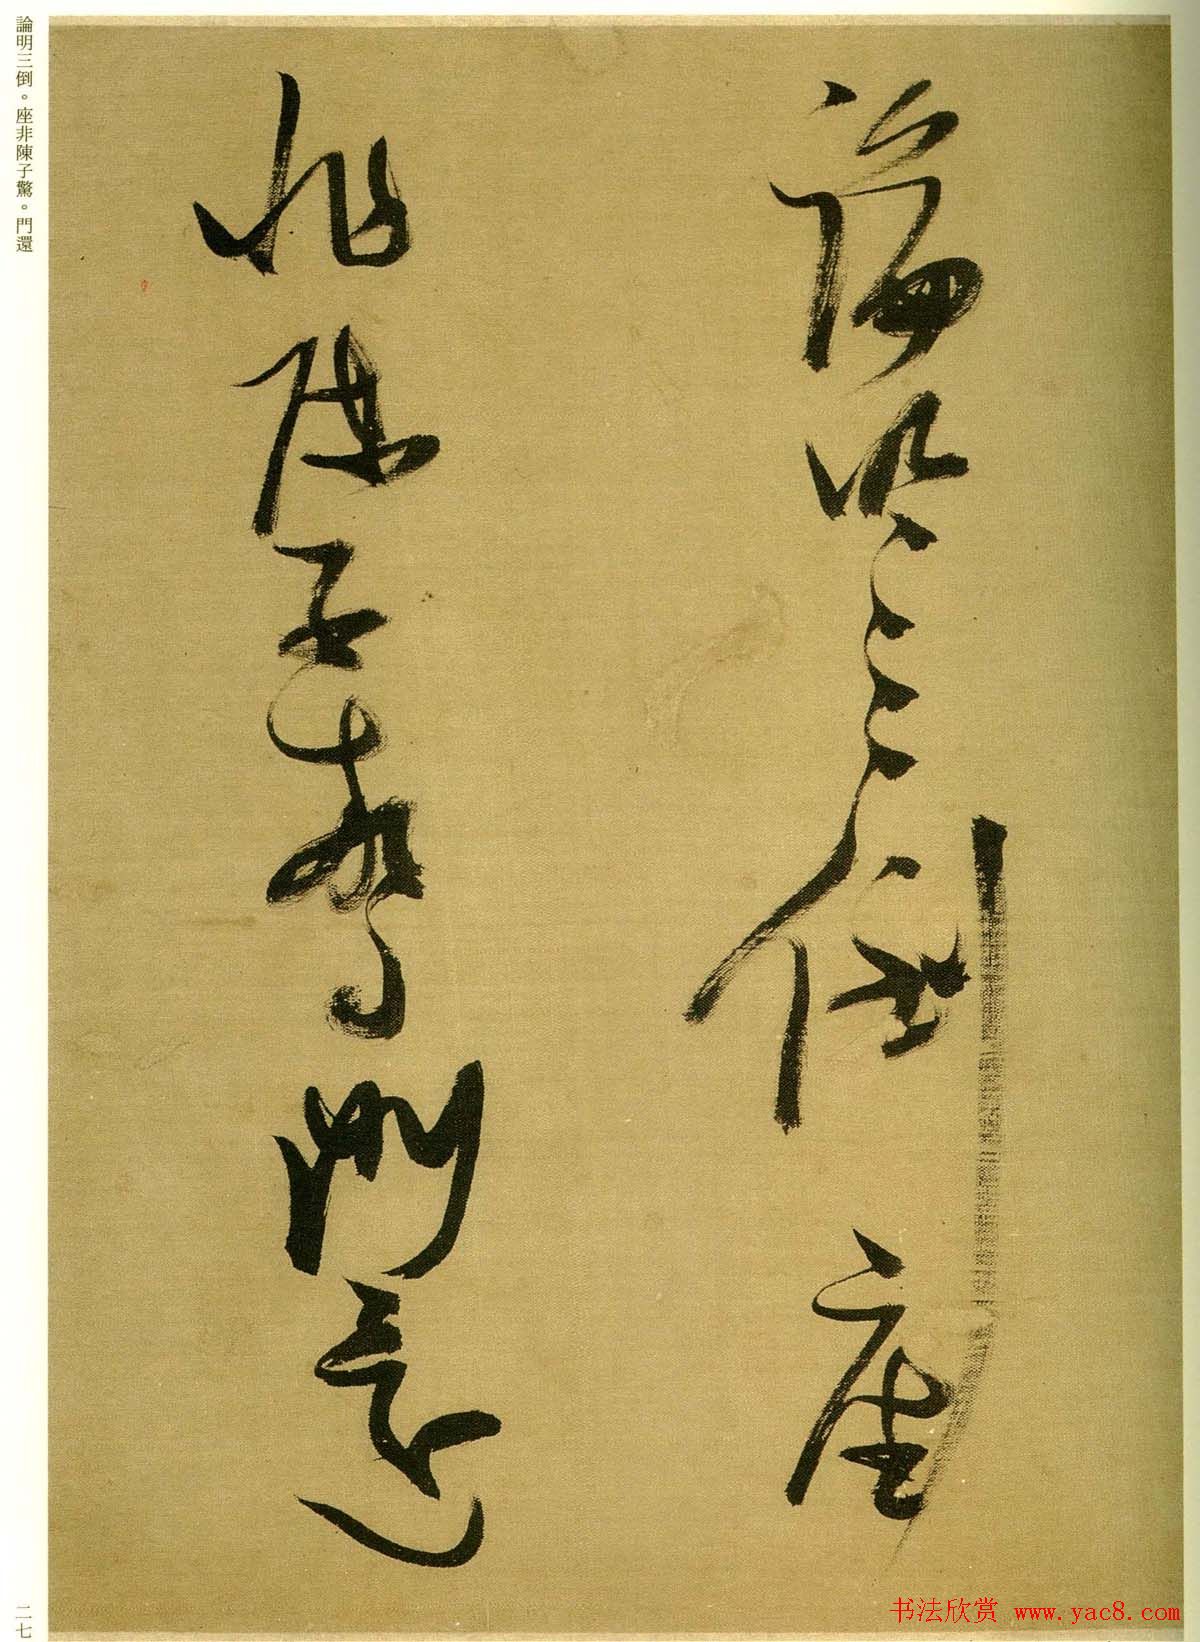 論明三倒座
非陳子驚門還
論明三倒。座非陳子驚。門還
二七
书法欣赏 www.yac8.com